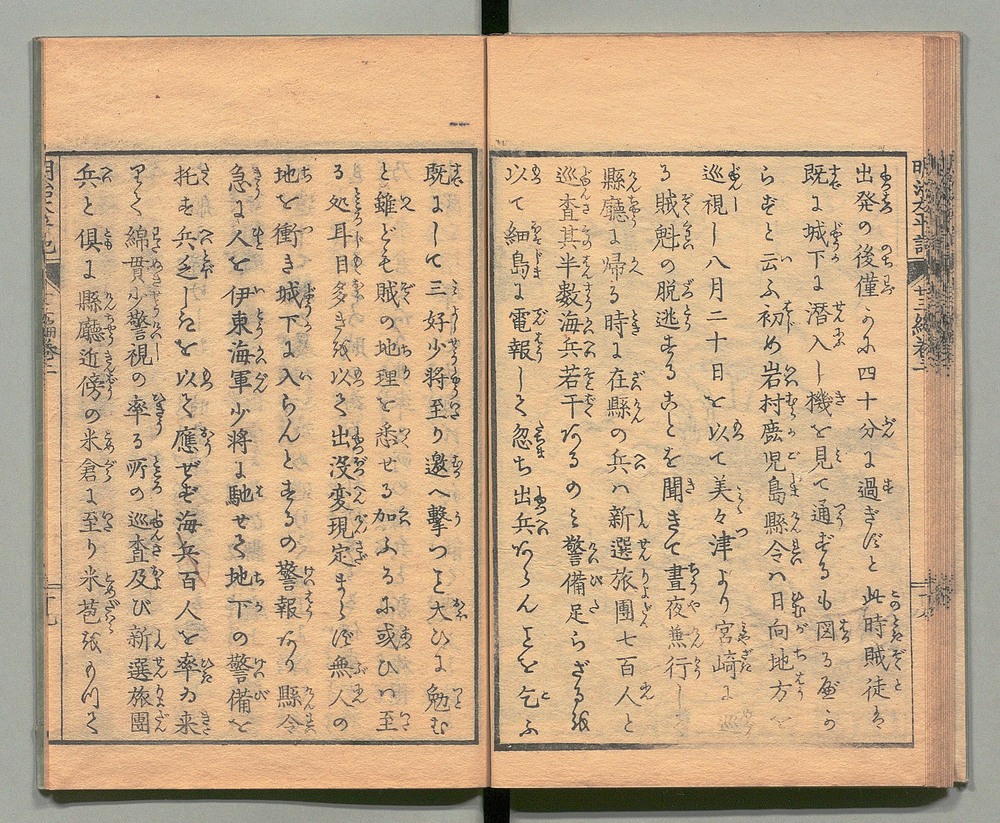 明治太平記 廿三編巻二
出発の後僅かに四十分に過ぎずと此時賊徒は
既に城下に潜入し機を見て通ずるも図る可か
らずと云ふ初め岩村鹿児島縣令ハ日向地方を
巡視し八月二十日を以て美々津より宮崎に巡
る賊魁の脱逃することを聞きて晝夜兼行し
縣廳に帰る時に在縣の兵ハ新選旅團七百人と
巡査其半數海兵若干あるのミ警備足らざるを
以て細島に電報して忽ち出兵あらんことを乞ふ
既にして三好少将至り邀へ擊つこと大ひに勉む
と雖ども賊の地理を悉せる加ふるに或ひハ至
る処耳目多きを以て出没変現定まらず無人の
地を衝き城下に入らんとするの警報あり縣令
急に人を伊東海軍少将に馳せて地下の警備を
托す兵乏しきを以て應ぜず海兵百人を率ゐ来
綿貫少警視の率る所の巡査及び新選旅團
兵と倶に縣廳近傍の米倉に至り米苞をもつて
明治太平記